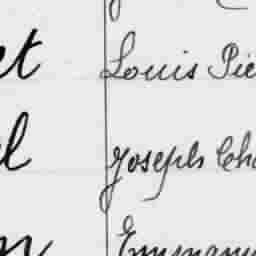 et Louis Pie
el Joseph Cha
n Emmanu